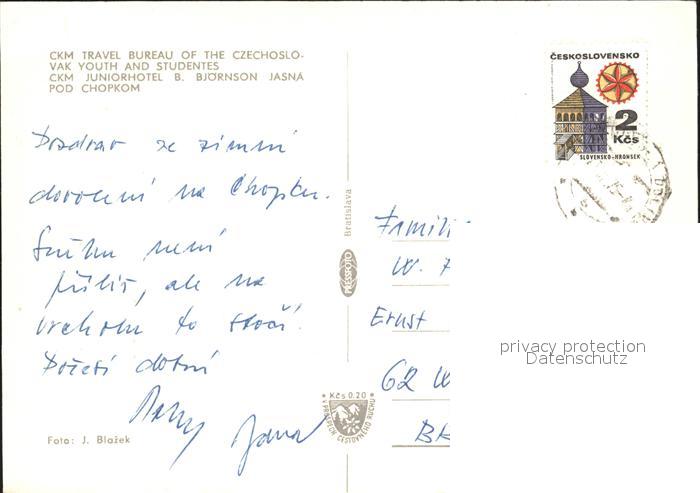 CKM TRAVEL BUREAU OF THE CZECHOSLO-
VAK YOUTH AND STUDENTES
CKM JUNIORHOTEL B. BJÖRNSON JASNÁ
POD CHOPKOM
ČESKOSLOVENSKO
2
Kčs
SLOVENSKO-HRONSEK
Pozdrav ze zimní
dovolené na Chopku.
Sněhu není
příliš, ale na
vrcholu to stačí.
Počasí dobré
Jana
Foto: J. Blažek
Bratislava
PRESSFOTO
Kčs 0.20
V PROSPĚCH CESTOVNÉHO RUCHU
Famili
W.
Ernst
62 W
privacy protection
Datenschutz